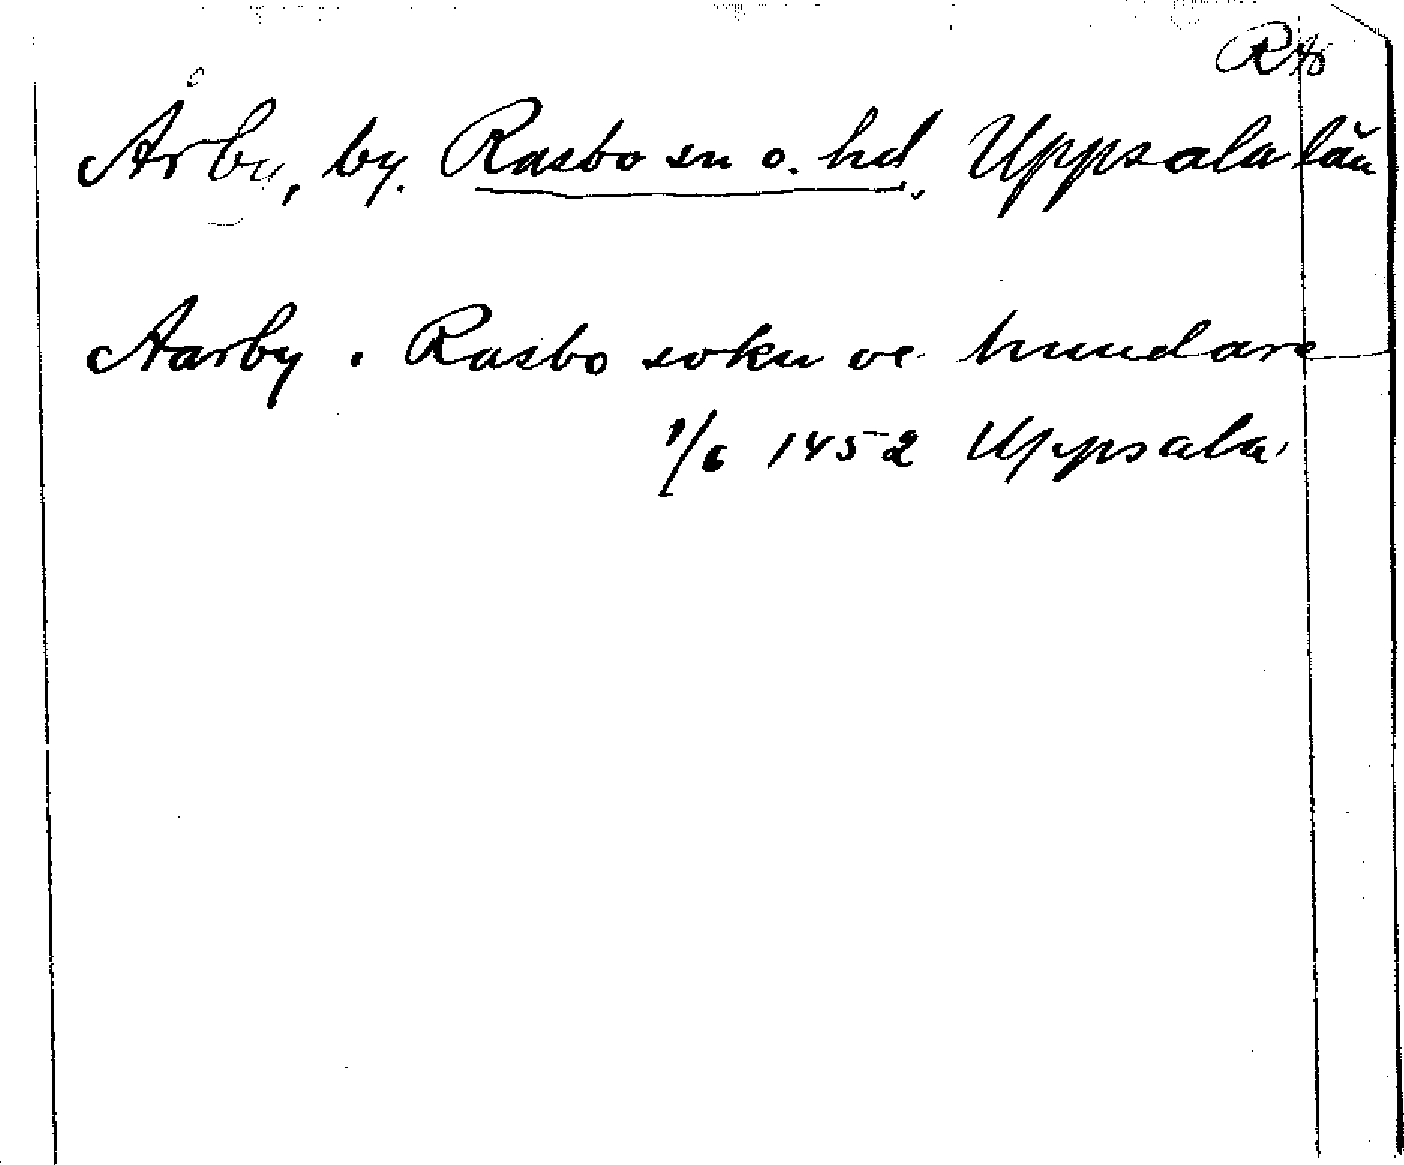 Årby, by. Rasbo sn o. hd, Uppsala län
Aarby. Rasbo sokn oc hundare
1/6 1452 Uppsala.